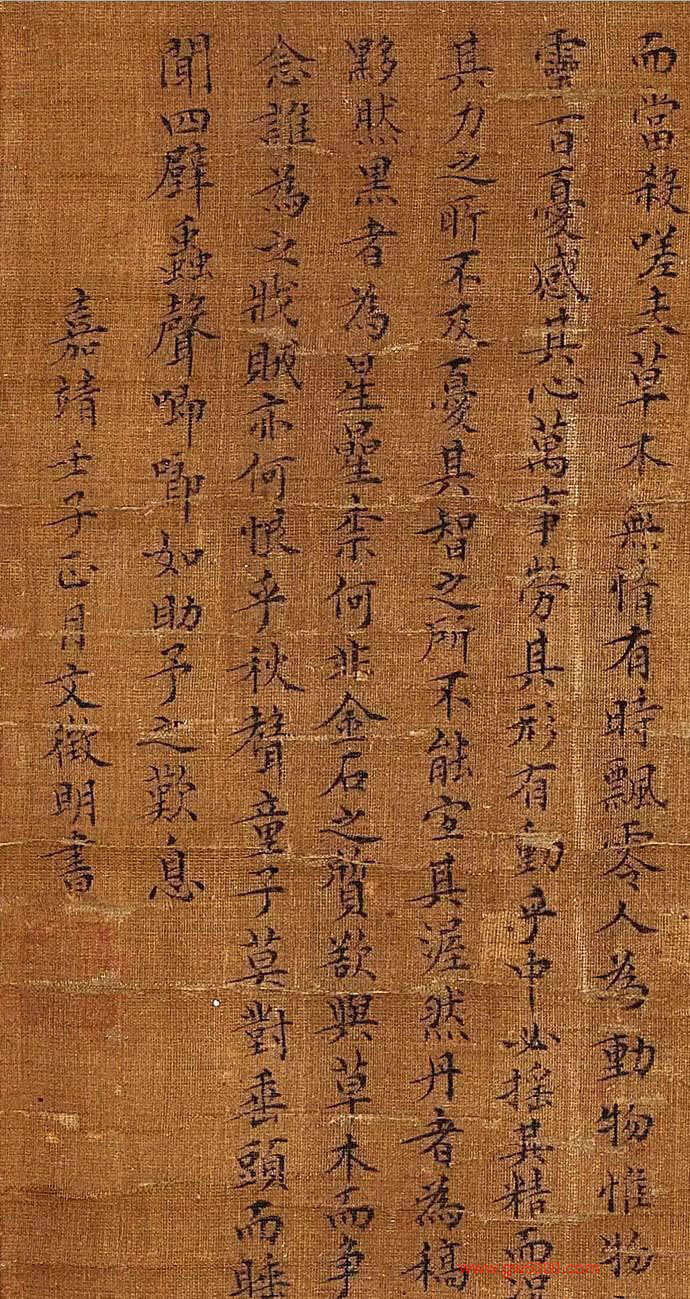 而當殺嗟夫草木無情有時飄零人為動物惟物
靈百憂感其心萬事勞其形有動乎中必搖其精而
其力之所不及憂其智之所不能宜其渥然丹者為稿
黟然黑者為星星柰何非金石之質欲與草木而爭
念誰為之戕賊亦何恨乎秋聲童子莫對垂頭而睡
聞四壁蟲聲唧唧如助予之歎息
嘉靖壬子正月文徵明書